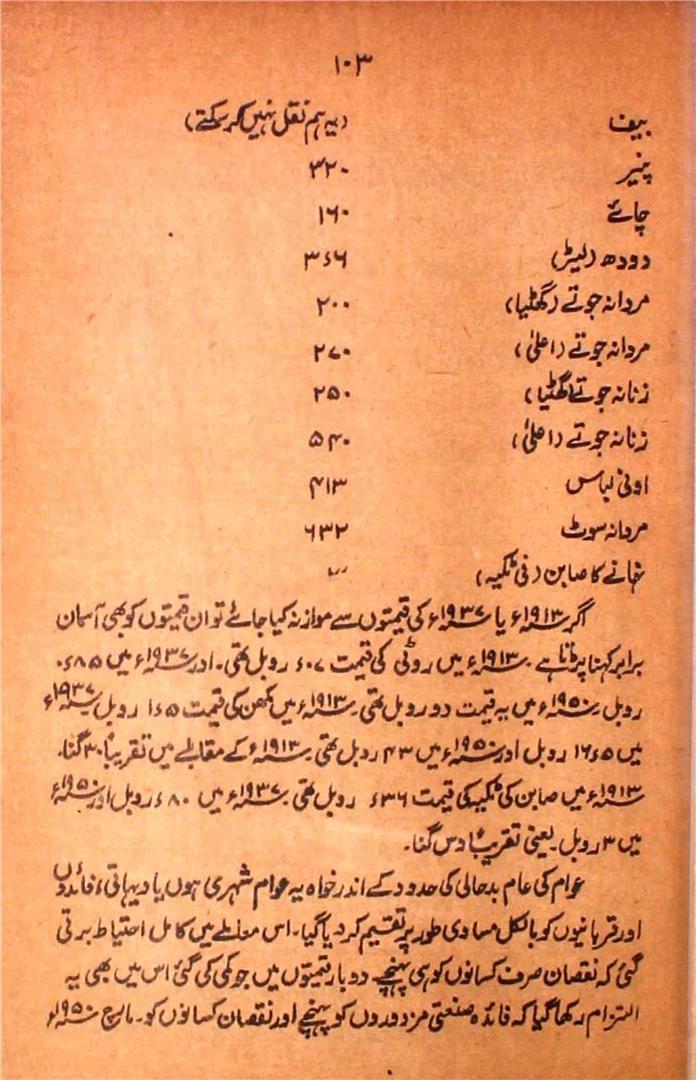 ۱۰۳
بیف (یہ ہم نقل نہیں کر سکتے)
پنیر ۳۲۰
چائے ۱۶۰
دودھ (لیٹر) ۳ء۶
مردانہ جوتے (گھٹیا) ۲۰۰
مردانہ جوتے (اعلیٰ) ۲۷۰
زنانہ جوتے (گھٹیا) ۲۵۰
زنانہ جوتے (اعلیٰ) ۵۴۰
اونی لباس ۴۱۳
مردانہ سوٹ ۶۳۲
نہانے کا صابن (فی ٹکیہ)
اگر ۱۹۱۳ء یا ۱۹۳۷ء کی قیمتوں سے موازنہ کیا جائے تو ان قیمتوں کو بھی آسمان
برابر کہنا پڑتا ہے۔ ۱۹۱۳ء میں روٹی کی قیمت ۰۷ء روبل تھی۔ اور ۱۹۳۷ء میں ۸۵ء۰
روبل۔ ۱۹۵۰ء میں یہ قیمت دو روبل تھی۔ ۱۹۱۳ء میں مکھن کی قیمت ۱ء۵ روبل ۱۹۳۷ء
میں ۱۶ء۵ روبل اور ۱۹۵۰ء میں ۴۳ روبل تھی۔ ۱۹۱۳ء کے مقابلے میں تقریباً ۳۰ گنا۔
۱۹۱۳ء میں صابن کی ٹکیہ کی قیمت ۳۶ء روبل تھی۔ ۱۹۳۷ء میں ۸۰ء روبل اور ۱۹۵۰ء
میں ۳ روبل۔ یعنی تقریباً دس گنا۔
عوام کی عام بدحالی کی حدود کے اندر خواہ یہ عوام شہری ہوں یا دیہاتی، فائدوں
اور قربانیوں کو بالکل مساوی طور پر تقسیم کر دیا گیا۔ اس معاملے میں کامل احتیاط برتی
گئی کہ نقصان صرف کسانوں کو ہی پہنچے۔ دوبار قیمتوں میں جو کمی کی گئی اس میں بھی یہ
التزام رکھا گیا کہ فائدہ صنعتی مزدوروں کو پہنچے اور نقصان کسانوں کو۔ مارچ ۱۹۵۰ء